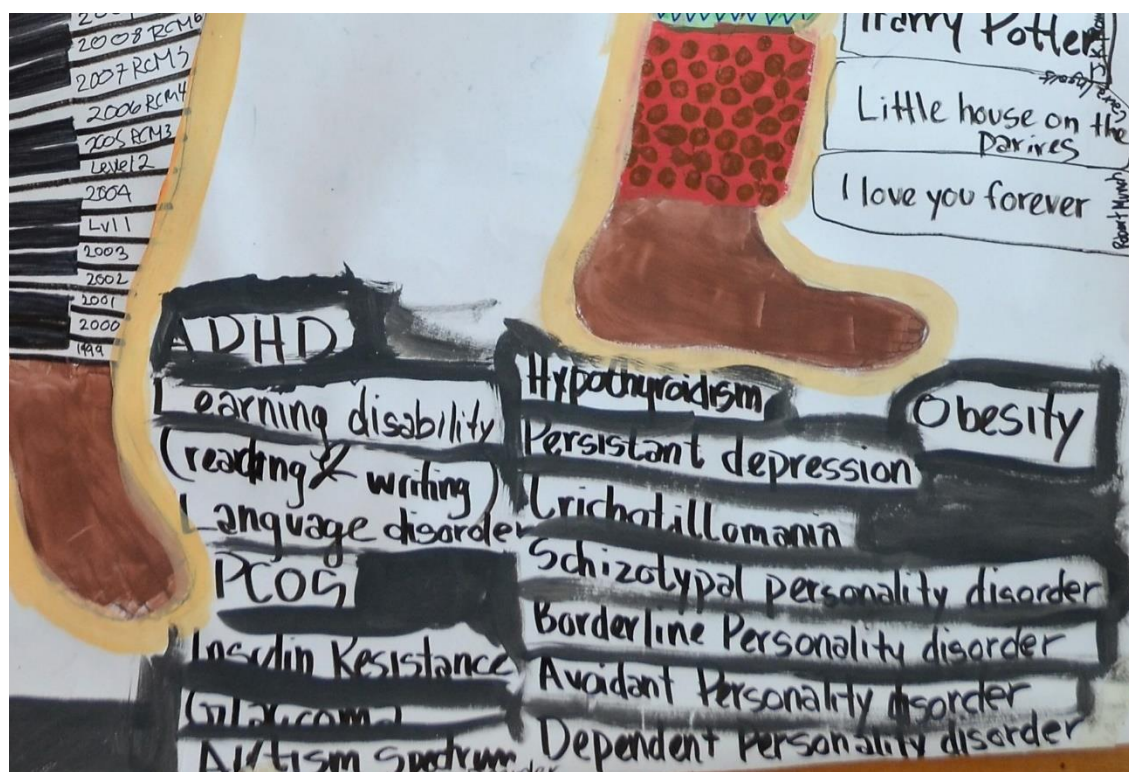 2008 RCM6
2007 RCM5
2006 RCM4
2005 RCM3
Level 2
2004
Lvl 1
2003
2002
2001
2000
1999
Harry Potter
Little house on the
Parires
I love you forever
Robert Munch
ADHD
Learning disability
(reading & writing)
Language disorder
PCOS
Insulin Resistance
Glaucoma
Autism Spectrum
Hypothyroidism
Obesity
Persistant depression
Trichotillomania
Schizotypal personality disorder
Borderline Personality disorder
Avoidant Personality disorder
Dependent Personality disorder